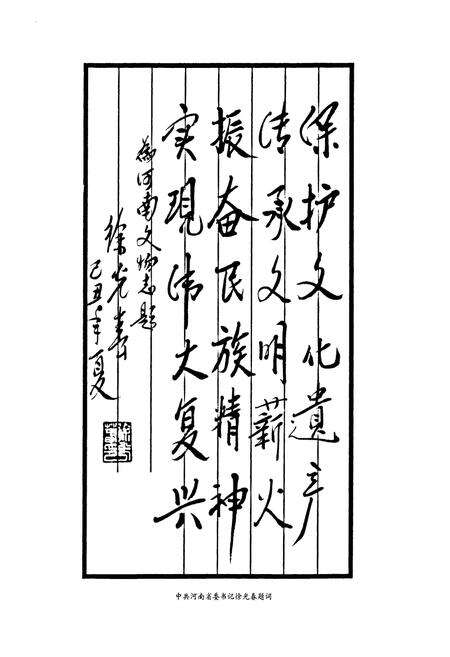 保护文化遗产
传承文明薪火
振奋民族精神
实现伟大复兴
为河南文物志题
徐光春
己丑年夏
中共河南省委书记徐光春题词